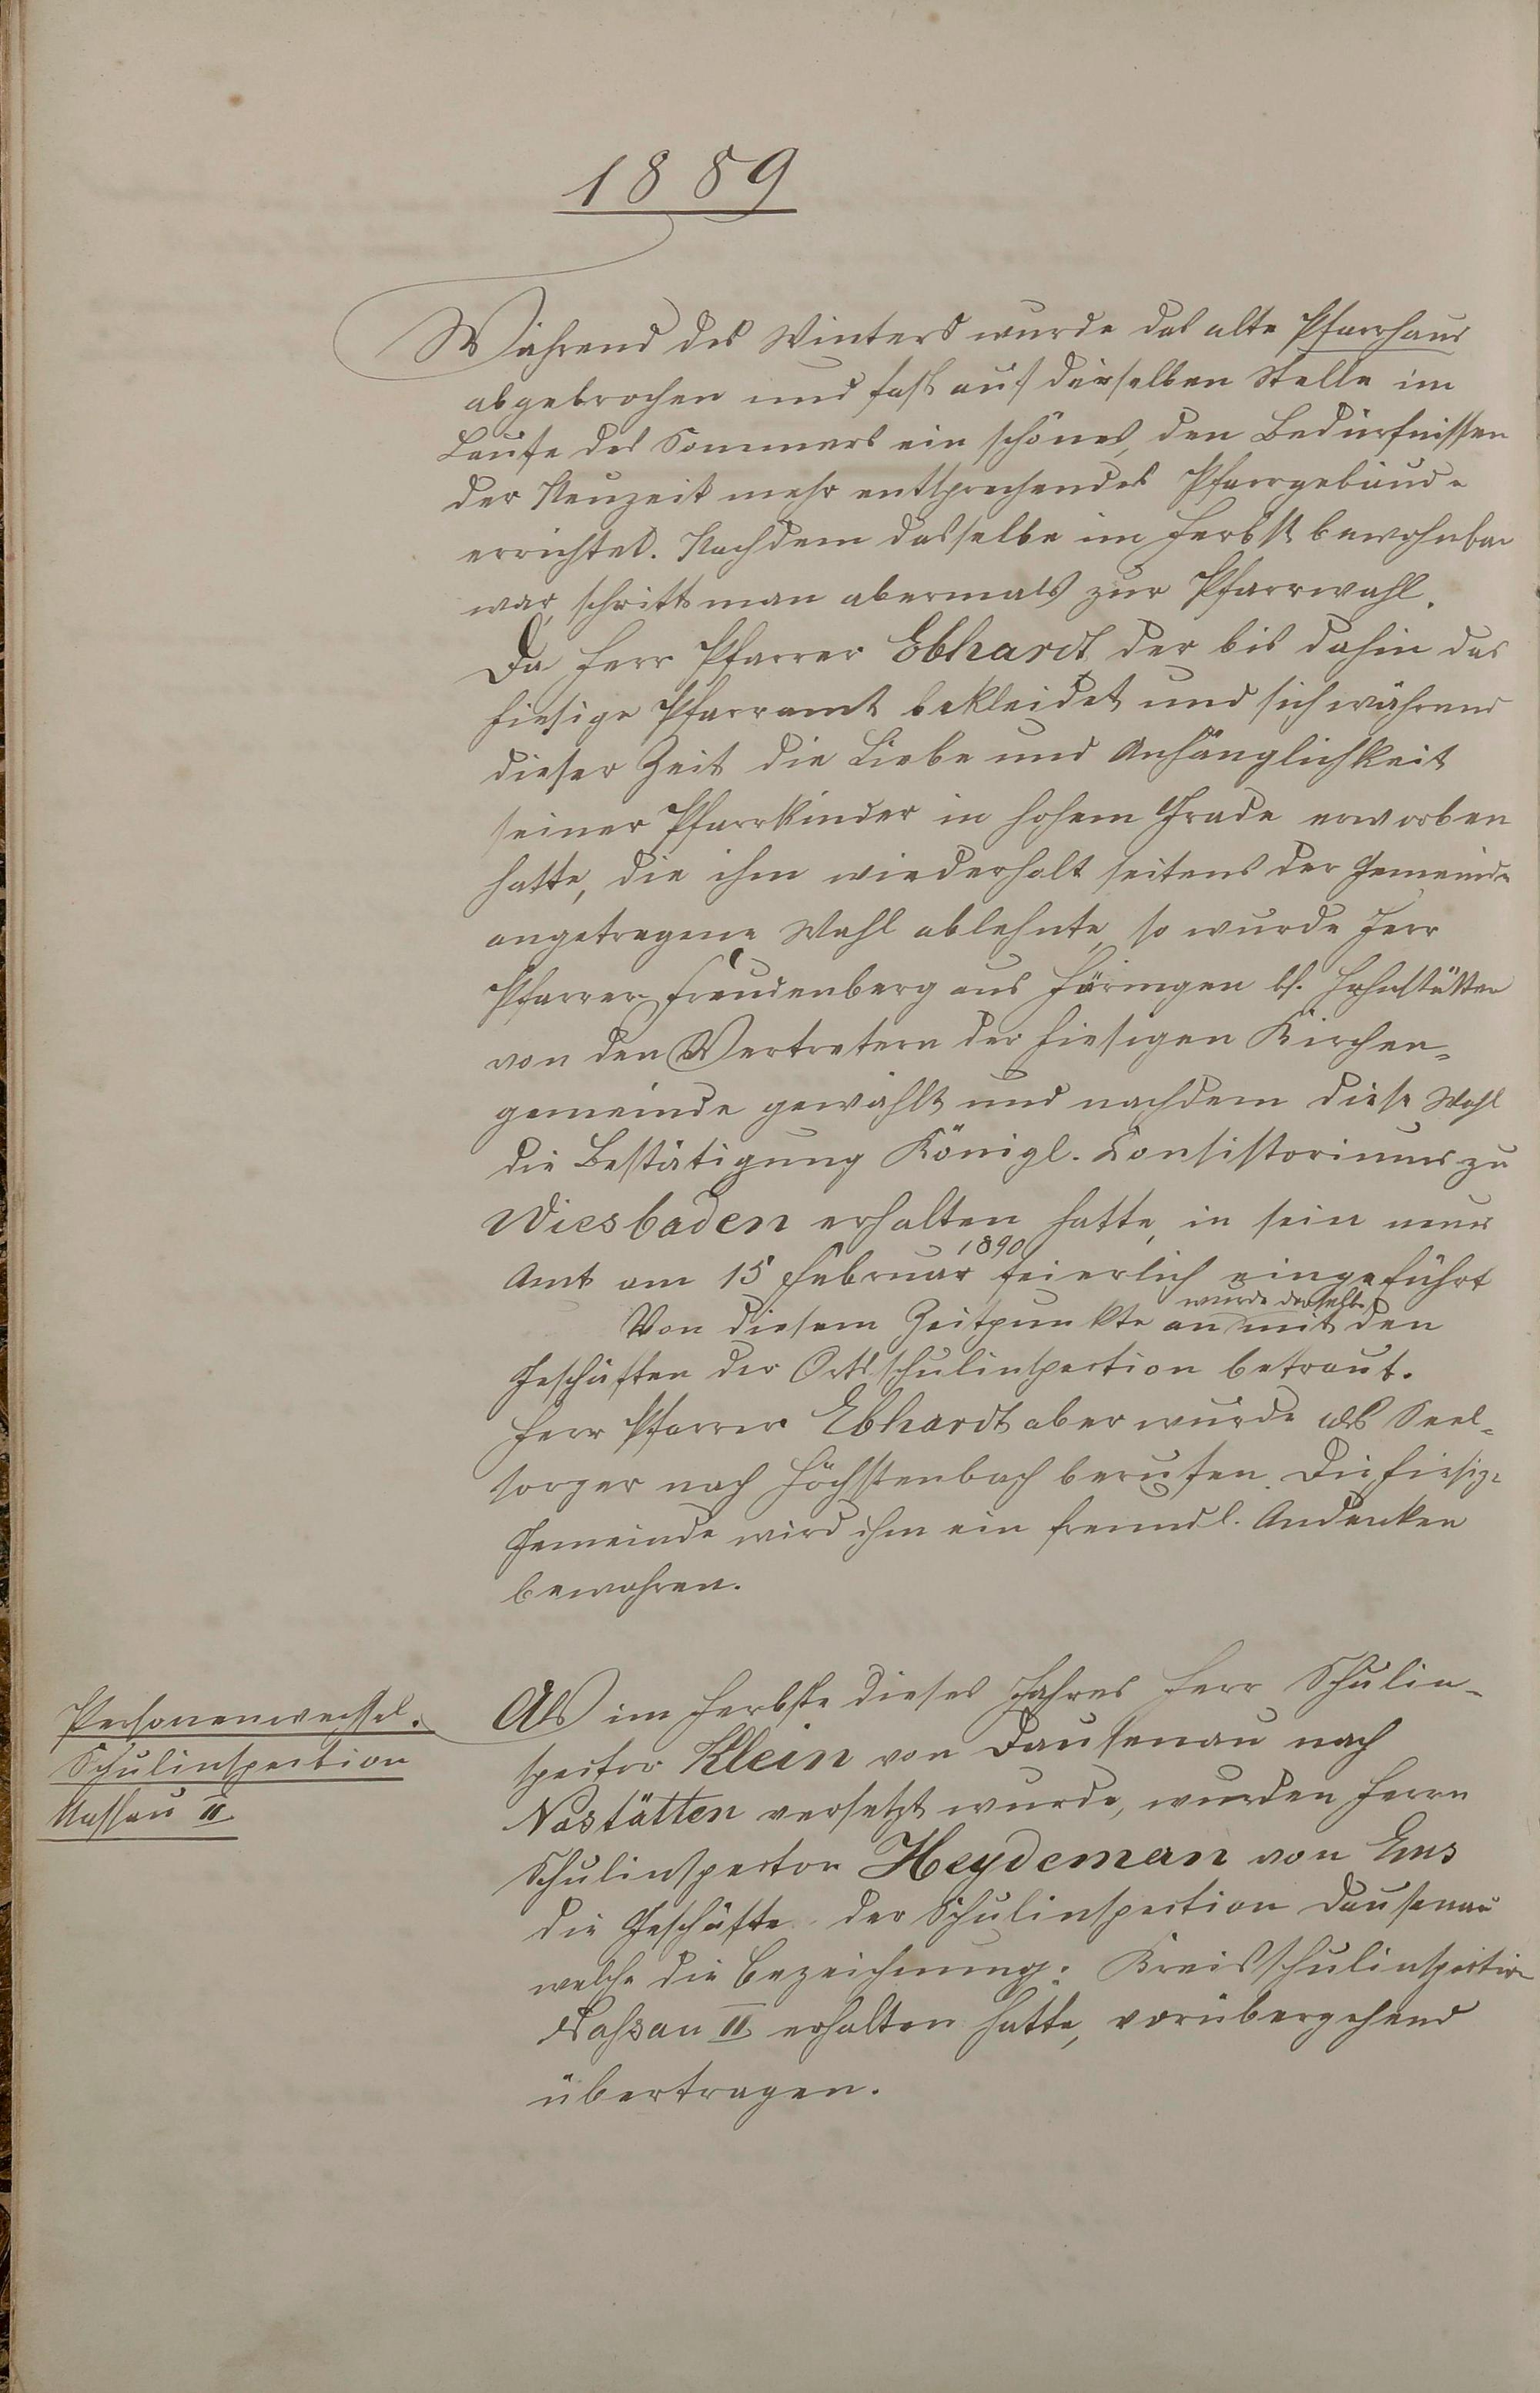 1889
Während des Winters wurde das alte Pfarrhaus
abgebrochen und fast auf derselben Stelle im
Laufe des Sommers ein schönes, den Bedürfnissen
der Neuzeit mehr entsprechendes Pfarrgebäude
errichtet. Nachdem dasselbe im Herbst bewohnbar
war, schritt man abermals zur Pfarrwahl.
Da Herr Pfarrer Ebhardt, der bis dahin das
hiesige Pfarramt bekleidet und sich während
dieser Zeit die Liebe und Anhänglichkeit
seiner Pfarrkinder in hohem Grade erworben
hatte, die ihm wiederholt seitens der Gemeinde
angetragene Wahl ablehnte, so wurde Herr
Pfarrer Freudenberg aus Häringen b. Hahnstätten
von den Vertretern der hiesigen Kirchen-
gemeinde gewählt und nachdem diese Wahl
die Bestätigung Königl. Consistoriums zu
Wiesbaden erhalten hatte, in sein neues
1890
Amt am 15 Februar feierlich eingeführt
wurde derselbe
Von diesem Zeitpunkte an mit den
Geschäften der Ortsschulinspection betraut.
Herr Pfarrer Ebhardt aber wurde als Seel-
sorger nach Höchstenbach berufen. Die hiesige
Gemeinde wird ihm ein freundl. Andenken
bewahren.
Personenwechsel.
Schulinspection
Nassau II
Als im Herbste dieses Jahres Herr Schulin-
spector Klein von Dausenau nach
Nastätten versetzt wurde, wurden Herrn
Schulinspector Heydeman von Ems
die Geschäfte der Schulinspection Dausenau
welche die Bezeichnung: Kreisschulinspection
Nassau II erhalten hatte, vorübergehend
übertragen.